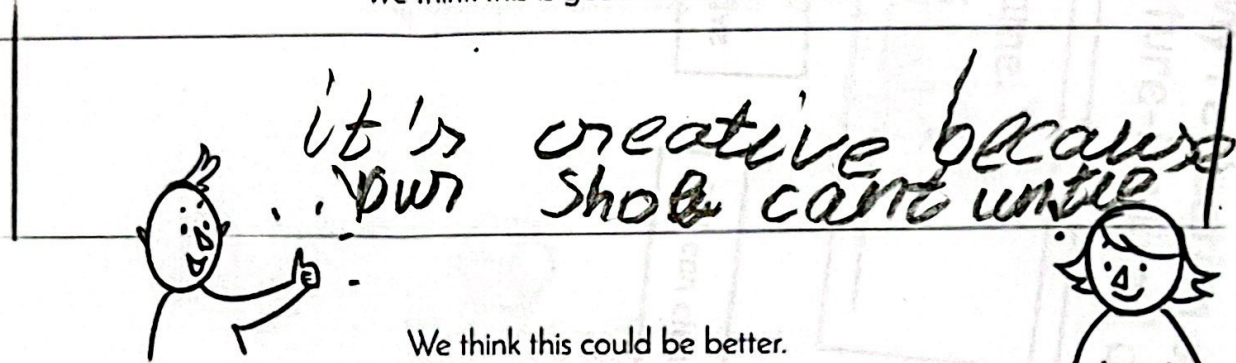 We think this is
it's creative because
your shoe cant untie
We think this could be better.